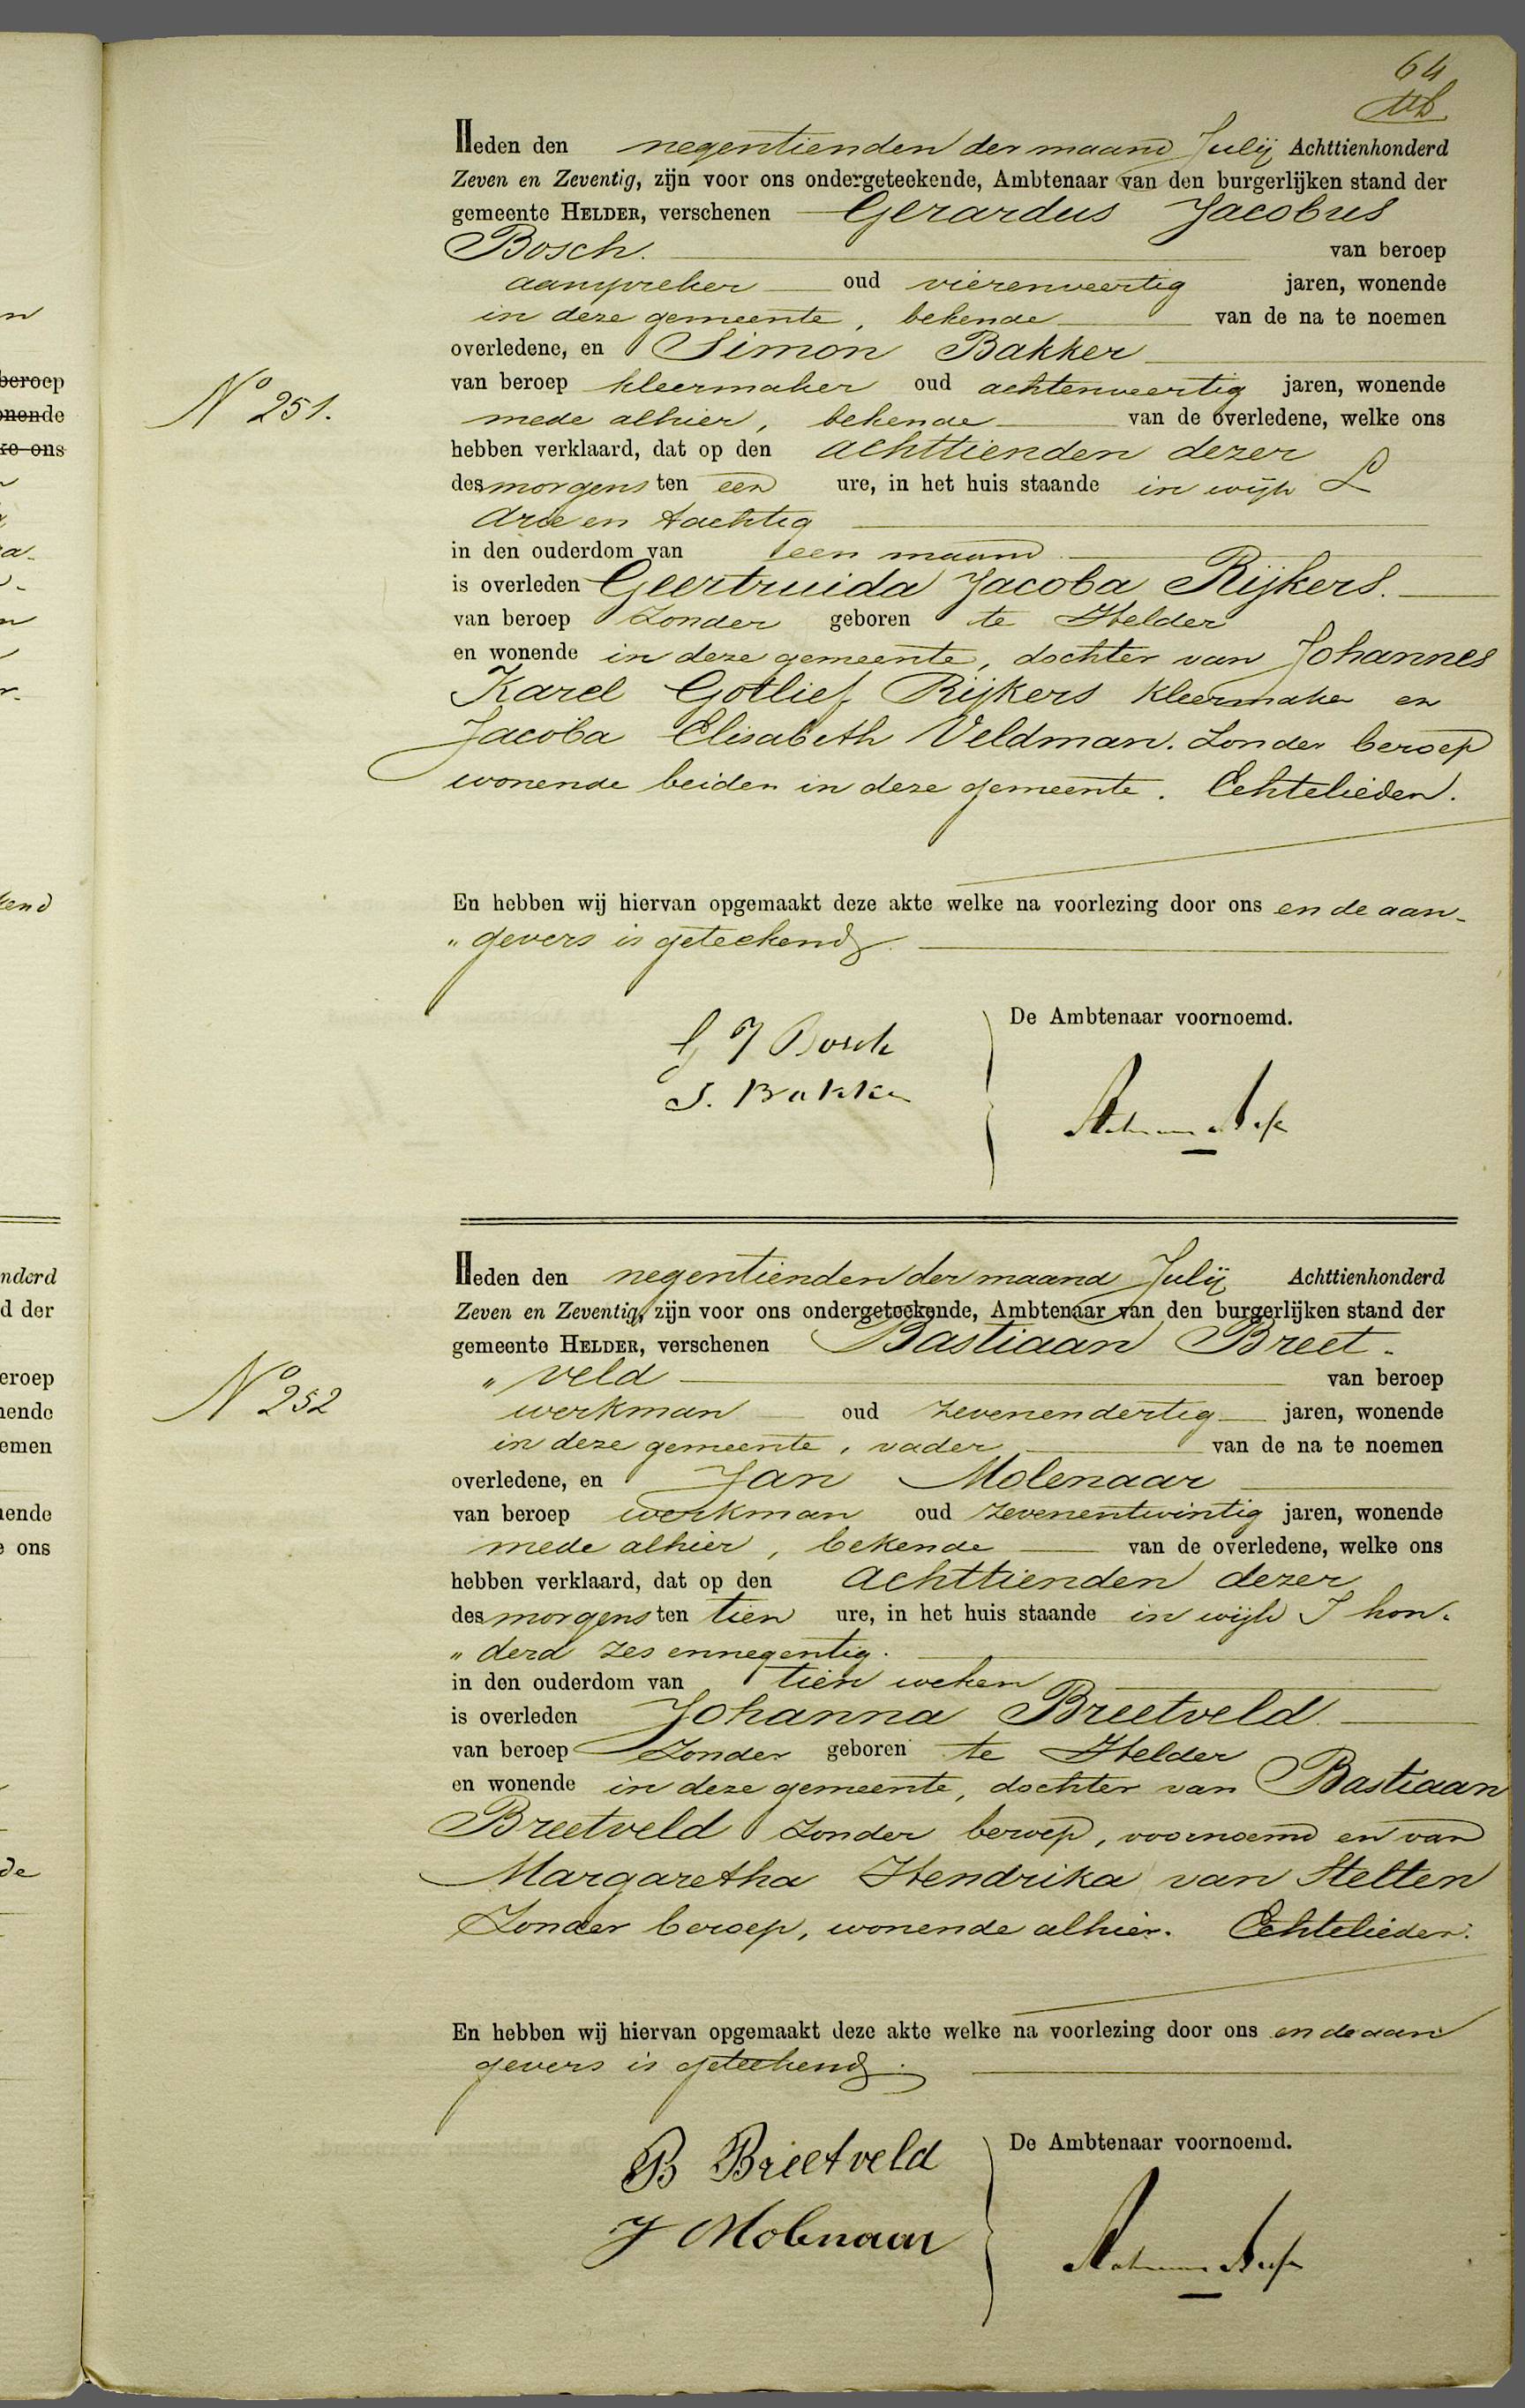 64
Heden den negentienden der maand Julij Achttienhonderd
Zeven en Zeventig, zijn voor ons ondergeteekende, Ambtenaar van den burgerlijken stand der
gemeente HELDER, verschenen Gerardus Jacobus
Bosch. van beroep
aanspreker oud vierenveertig jaren, wonende
in deze gemeente, bekende van de na te noemen
overledene, en Simon Bakker
van beroep kleermaker oud achtenveertig jaren, wonende
No 251.
mede alhier, bekende van de overledene, welke ons
hebben verklaard, dat op den achttienden dezer
des morgens ten een ure, in het huis staande in wijk L
drie en tachtig
in den ouderdom van een maand
is overleden Geertruida Jacoba Rijkers.
van beroep zonder geboren te Helder
en wonende in deze gemeente, dochter van Johannes
Karel Gotlief Rijkers kleermaker en
Jacoba Elisabeth Veldman. Zonder beroep
wonende beiden in deze gemeente. Echtelieden.
En hebben wij hiervan opgemaakt deze akte welke na voorlezing door ons en de aan-
" gevers is geteekend.
De Ambtenaar voornoemd.
G J Bosch
S. Bakker
Heden den negentienden der maand Julij Achttienhonderd
Zeven en Zeventig, zijn voor ons ondergeteekende, Ambtenaar van den burgerlijken stand der
gemeente HELDER, verschenen Bastiaan Breet-
" veld van beroep
No 252
werkman oud zevenendertig jaren, wonende
in deze gemeente, vader van de na te noemen
overledene, en Jan Molenaar
van beroep werkman oud zevenentwintig jaren, wonende
mede alhier, bekende van de overledene, welke ons
hebben verklaard, dat op den achttienden dezer
des morgens ten tien ure, in het huis staande in wijk I hon-
" derd zes ennegentig.
in den ouderdom van tien weken
is overleden Johanna Breetveld
van beroep Zonder geboren te Helder
en wonende in deze gemeente, dochter van Bastiaan
Breetveld zonder beroep, voornoemd en van
Margaretha Hendrika van Stelten
Zonder beroep, wonende alhier. Echtelieden.
En hebben wij hiervan opgemaakt deze akte welke na voorlezing door ons en de aan
gevers is geteekend.
De Ambtenaar voornoemd.
B Breetveld
J Molenaar